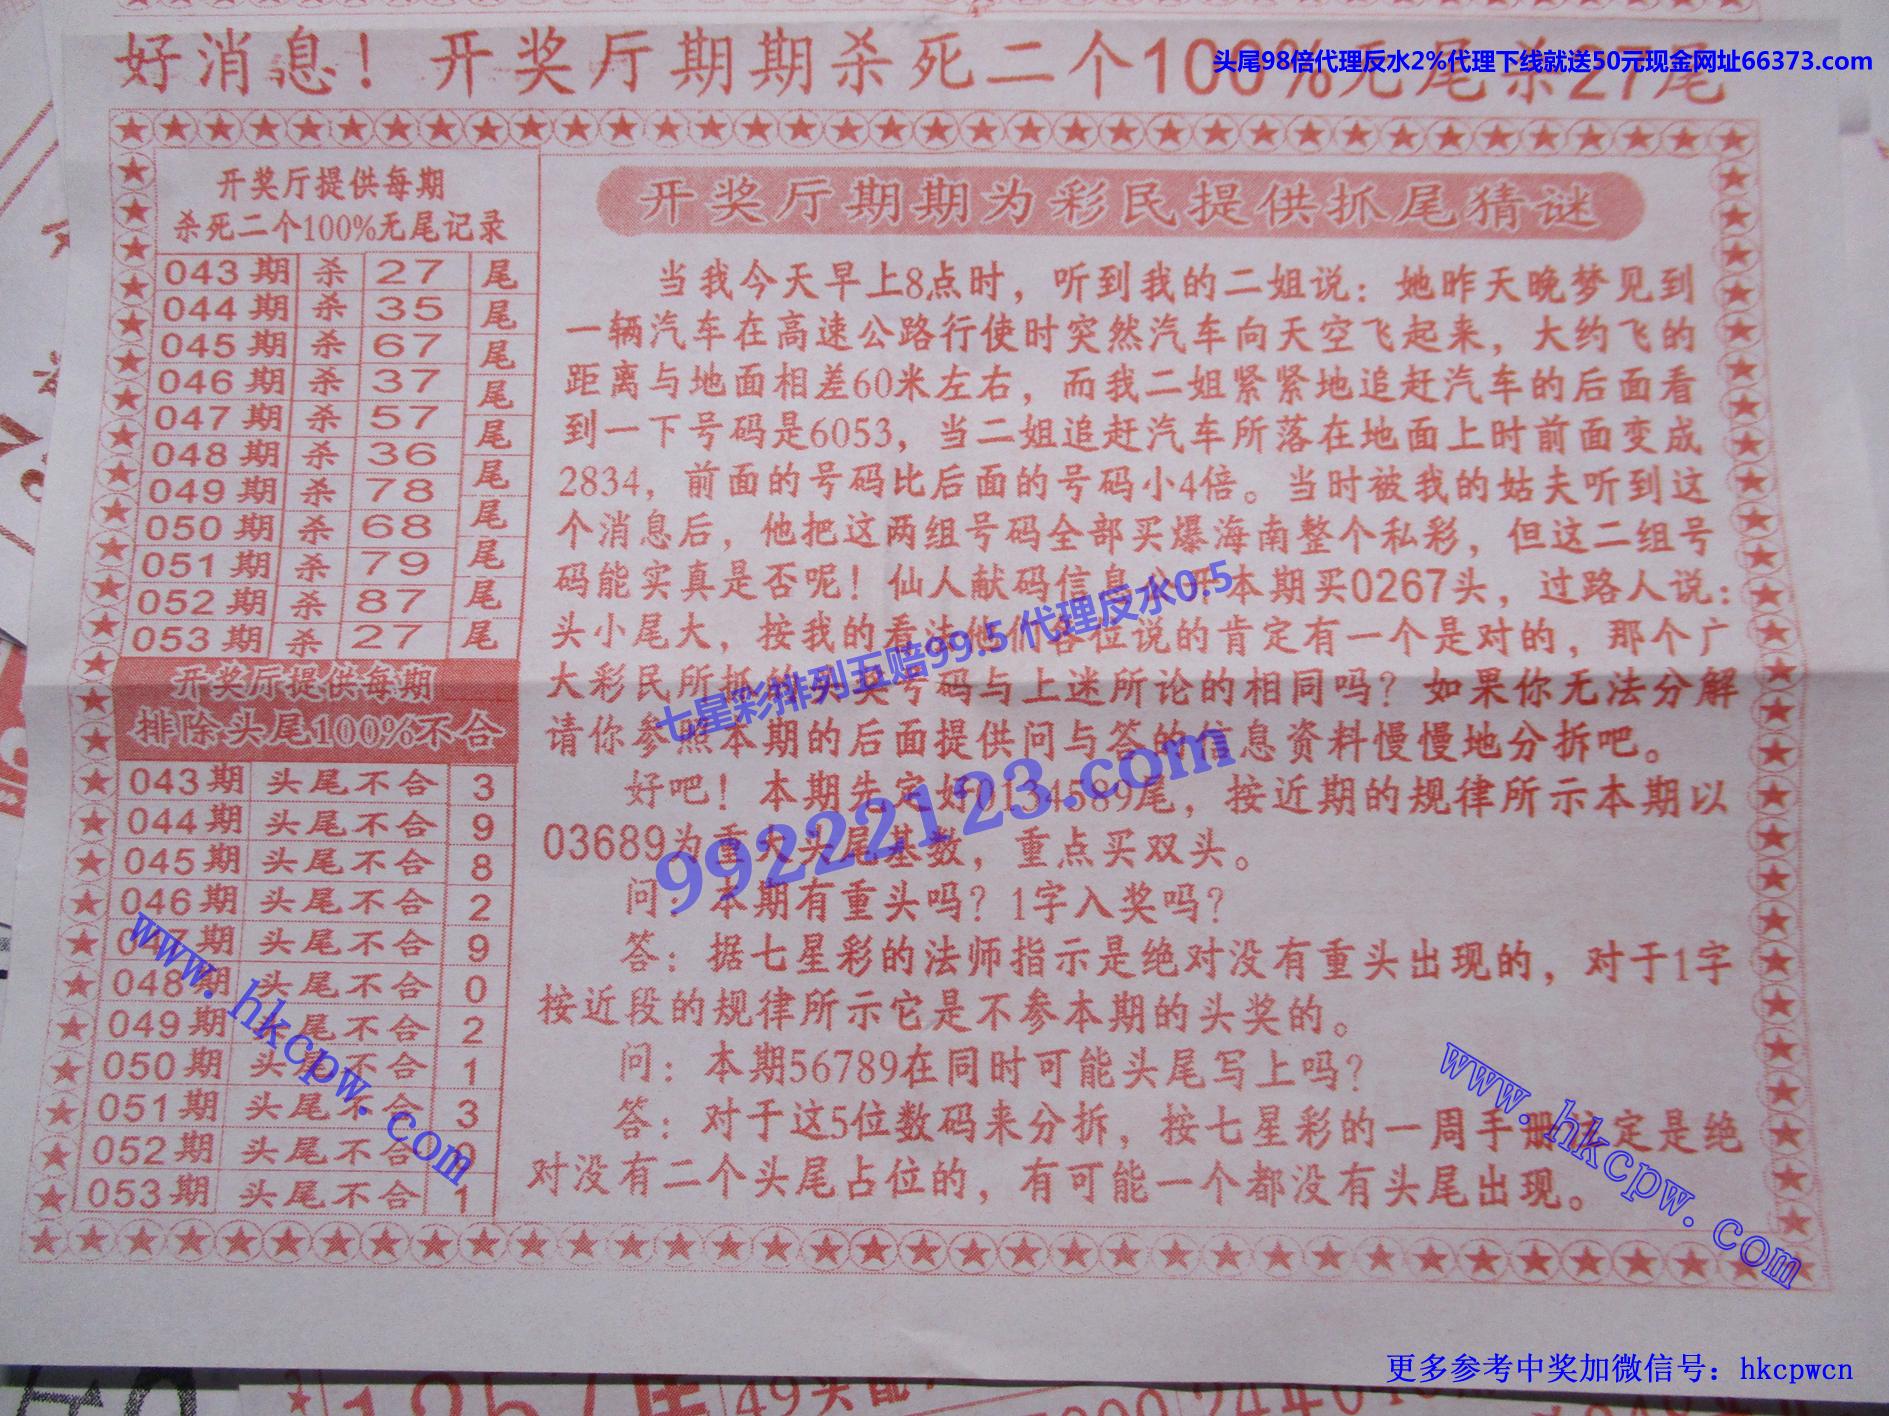 好消息！开奖厅期期杀死二个100%无尾杀27尾
头尾98倍代理反水2%代理下线就送50元现金网址66373.com
开奖厅提供每期
杀死二个100%无尾记录
043期 杀 27 尾
044期 杀 35 尾
045期 杀 67 尾
046期 杀 37 尾
047期 杀 57 尾
048期 杀 36 尾
049期 杀 78 尾
050期 杀 68 尾
051期 杀 79 尾
052期 杀 87 尾
053期 杀 27 尾
开奖厅提供每期
排除头尾100%不合
043期 头尾不合 3
044期 头尾不合 9
045期 头尾不合 8
046期 头尾不合 2
047期 头尾不合 9
048期 头尾不合 0
049期 头尾不合 2
050期 头尾不合 1
051期 头尾不合 3
052期 头尾不合
053期 头尾不合 1
开奖厅期期为彩民提供抓尾猜谜
当我今天早上8点时，听到我的二姐说：她昨天晚梦见到
一辆汽车在高速公路行使时突然汽车向天空飞起来，大约飞的
距离与地面相差60米左右，而我二姐紧紧地追赶汽车的后面看
到一下号码是6053，当二姐追赶汽车所落在地面上时前面变成
2834，前面的号码比后面的号码小4倍。当时被我的姑夫听到这
个消息后，他把这两组号码全部买爆海南整个私彩，但这二组号
码能实真是否呢！仙人献码信息公开本期买0267头，过路人说：
头小尾大，按我的看法他们各位说的肯定有一个是对的，那个广
大彩民所抓的头奖号码与上迷所论的相同吗？如果你无法分解
请你参照本期的后面提供问与答的信息资料慢慢地分拆吧。
好吧！本期先定好0134589尾，按近期的规律所示本期以
03689为重九头尾基数，重点买双头。
问：本期有重头吗？1字入奖吗？
答：据七星彩的法师指示是绝对没有重头出现的，对于1字
按近段的规律所示它是不参本期的头奖的。
问：本期56789在同时可能头尾写上吗？
答：对于这5位数码来分拆，按七星彩的一周手册注定是绝
对没有二个头尾占位的，有可能一个都没有头尾出现。
七星彩排列五赔99.5 代理反水0.5
99222123.com
www.hkcpw.com
www.hkcpw.com
更多参考中奖加微信号：hkcpwcn
49头配